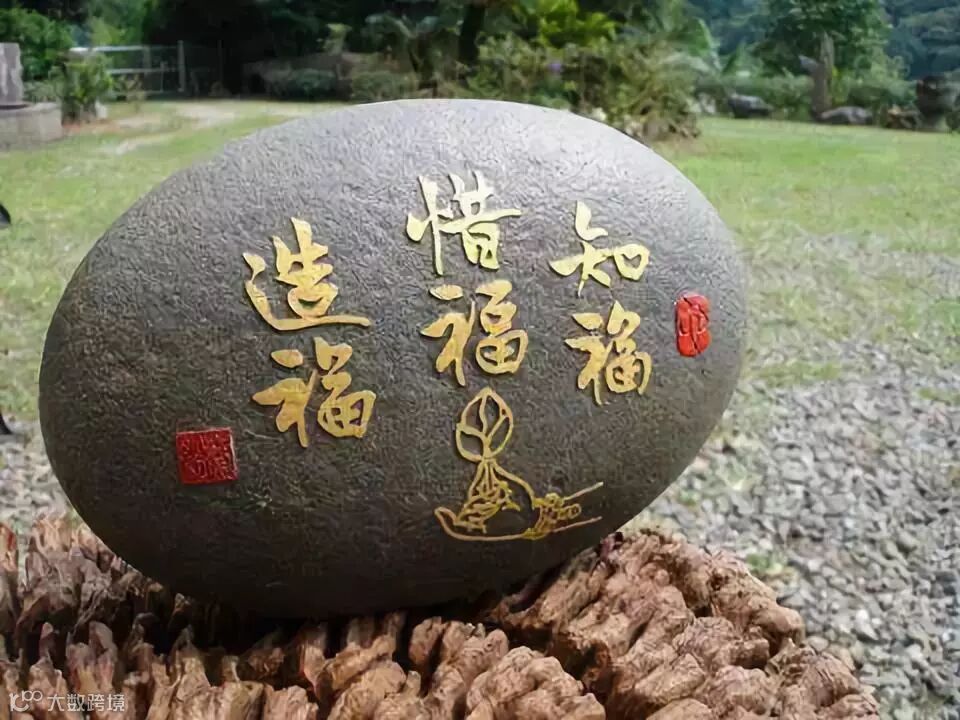 知福
惜福
造福
大数跨境